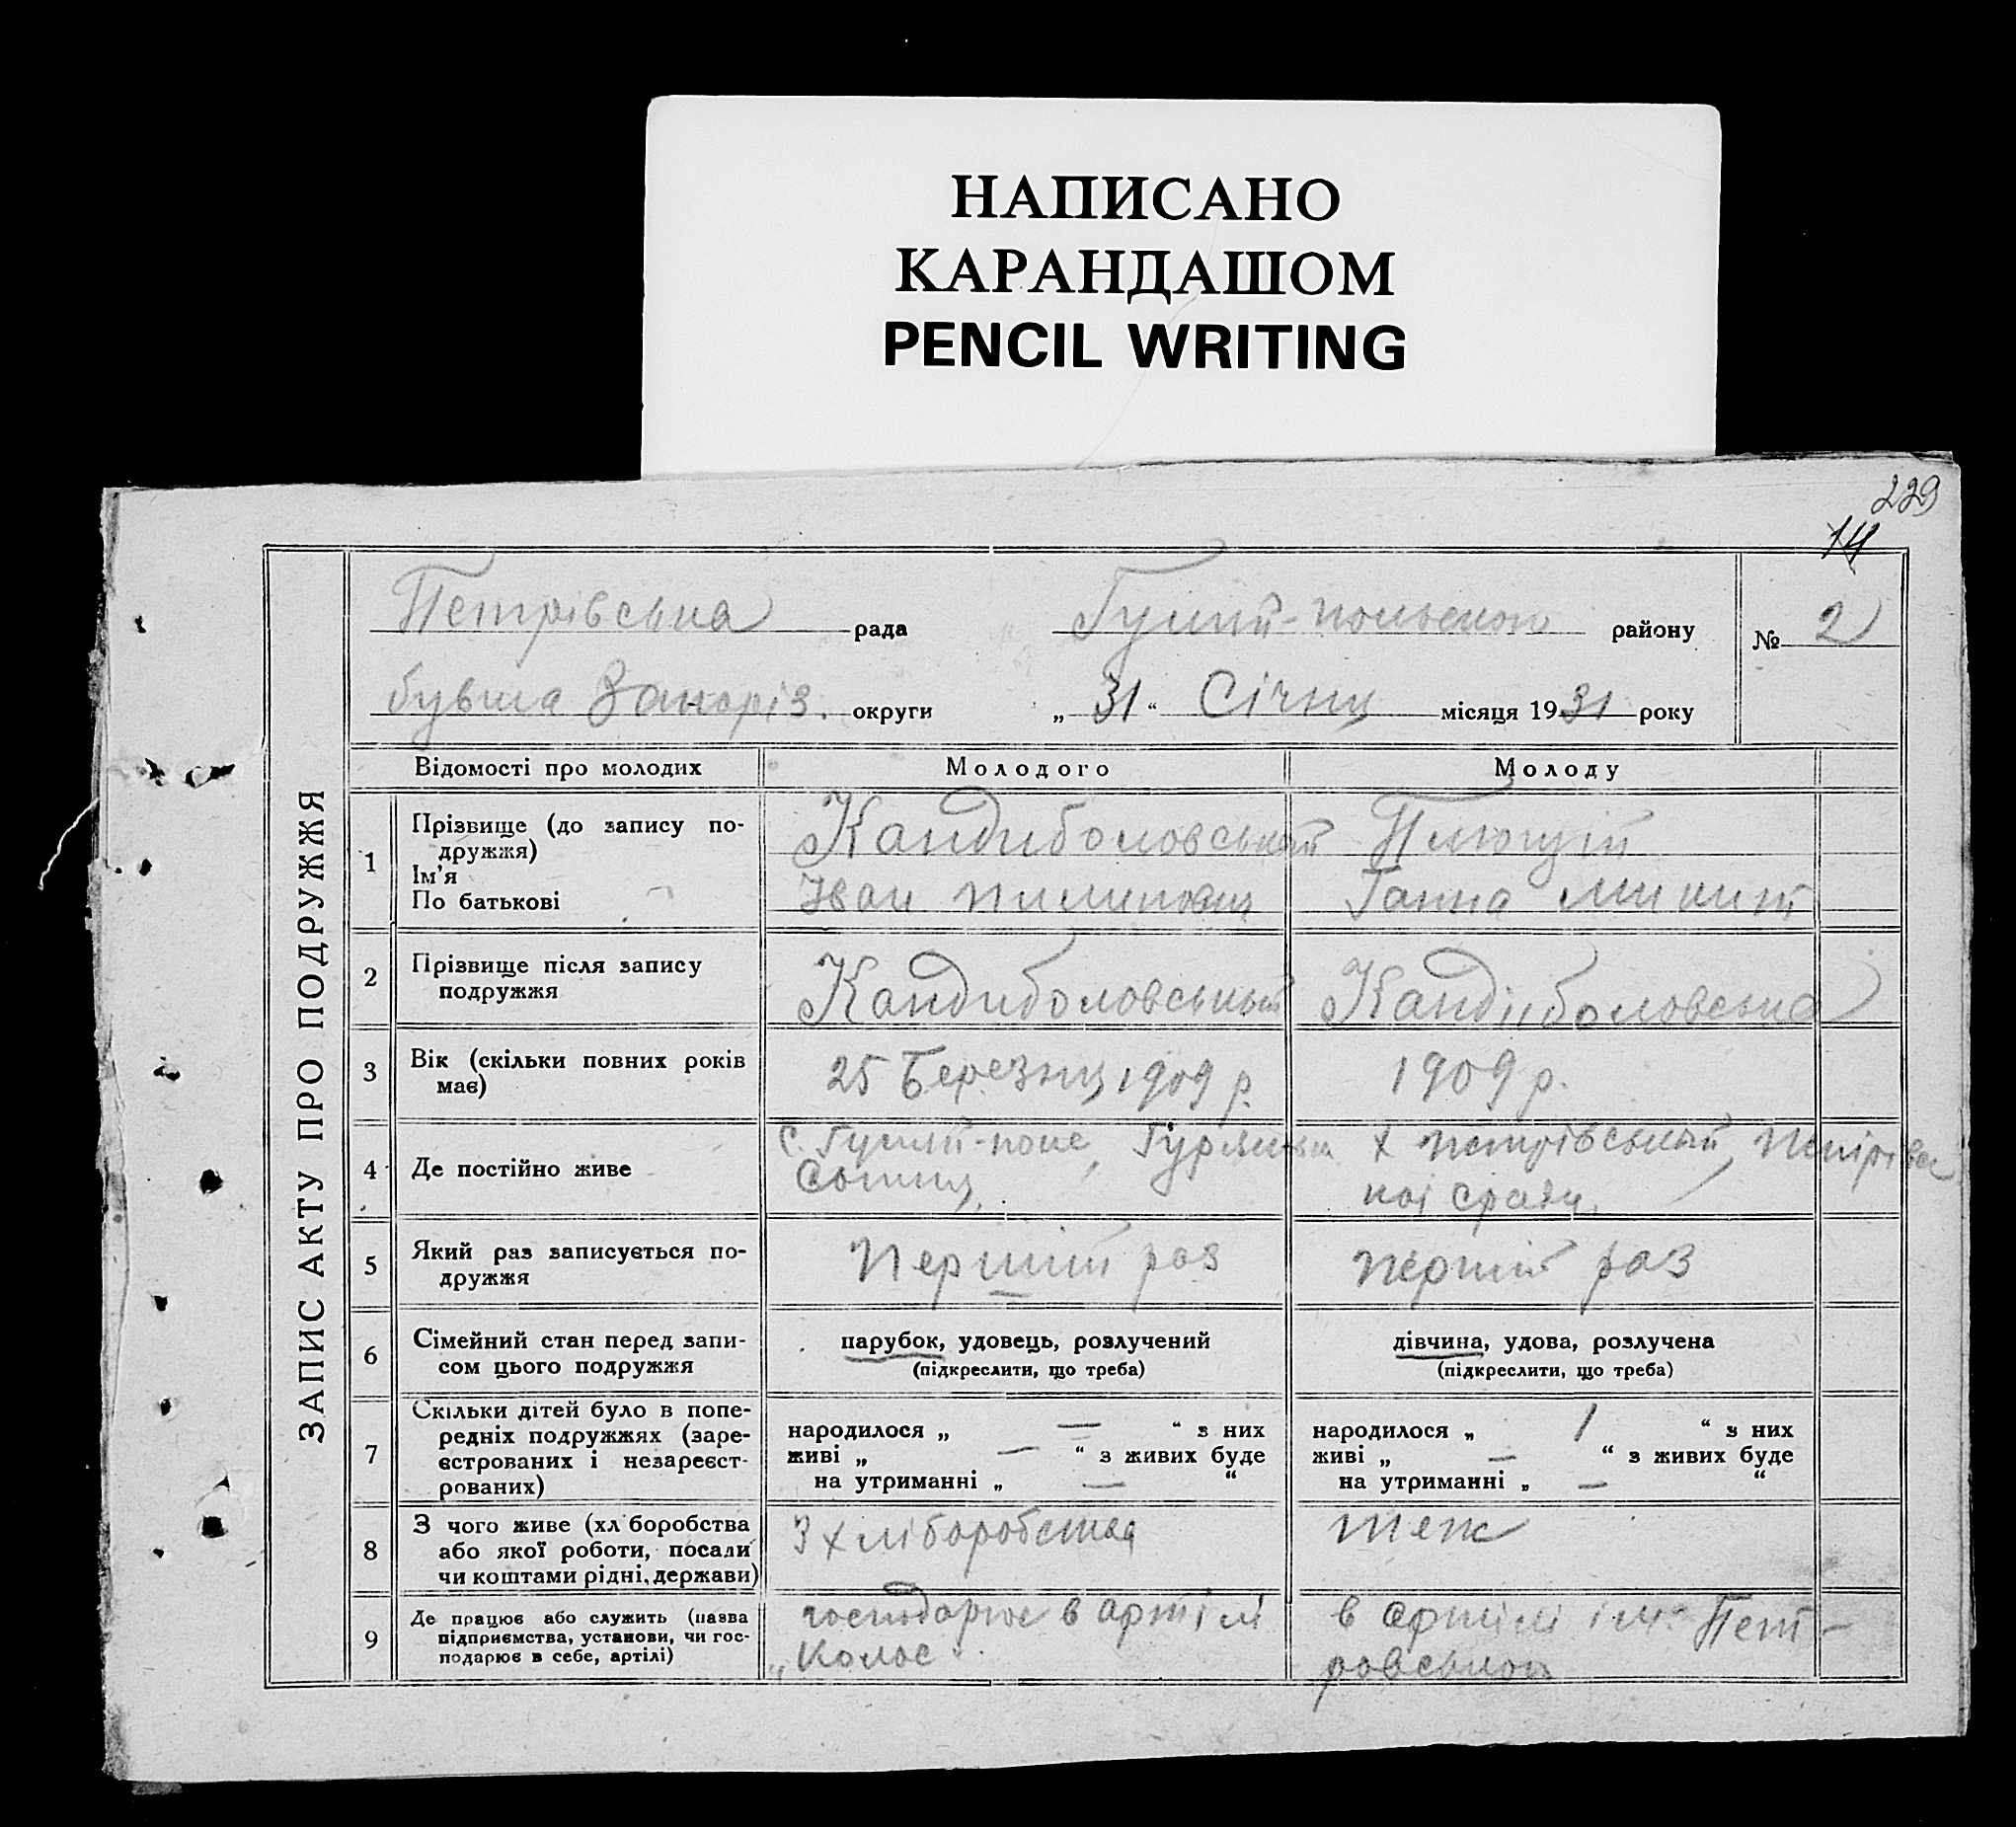 НАПИСАНО
КАРАНДАШОМ
PENCIL WRITING
229
14
ЗАПИС АКТУ ПРО ПОДРУЖЖЯ
Петрівська рада Гуляй-польського району № 2
бувша Запоріз. округи „31“ Січня місяця 1931 року
Відомості про молодих Молодого Молоду
1 Прізвище (до запису по-
дружжя)
Ім'я
По батькові
Кандиболовський
Іван Пилипович
Плющій
Ганна
2 Прізвище після запису
подружжя
Кандиболовський Кандиболовська
3 Вік (скільки повних років
має)
25 Березня 1909 р. 1909 р.
4 Де постійно живе
с. Гуляй-поле,
х Петрівський,
5 Який раз записується по-
дружжя
Перший раз перший раз
6 Сімейний стан перед запи-
сом цього подружжя
парубок, удовець, розлучений
(підкреслити, що треба)
дівчина, удова, розлучена
(підкреслити, що треба)
7 Скільки дітей було в попе-
редніх подружжях (заре-
єстрованих і незареєст-
рованих)
народилося „ — “ з них
живі „ — “ з живих буде
на утриманні „ — “
народилося „ 1 “ з них
живі „ — “ з живих буде
на утриманні „ — “
8 З чого живе (хл боробства
або якої роботи, посади
чи коштами рідні, держави)
З хліборобства теж
9 Де працює або служить (назва
підприємства, установи, чи гос-
подарює в себе, артілі)
господарює в артілі
„Колос
в артілі ім. Пет-
ровського